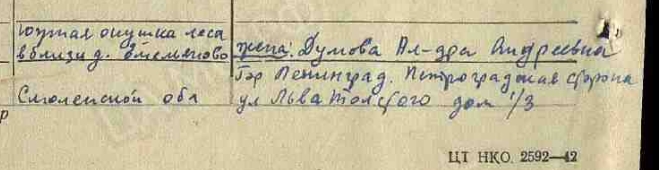 южная опушка леса
вблизи д. Емельяново
Смоленской обл
жена: Думова Ал-дра Андреевна
Гор Ленинград. Петроградская сторона
ул Льва Толстого дом 1/3
р
ЦТ НКО. 2592—42